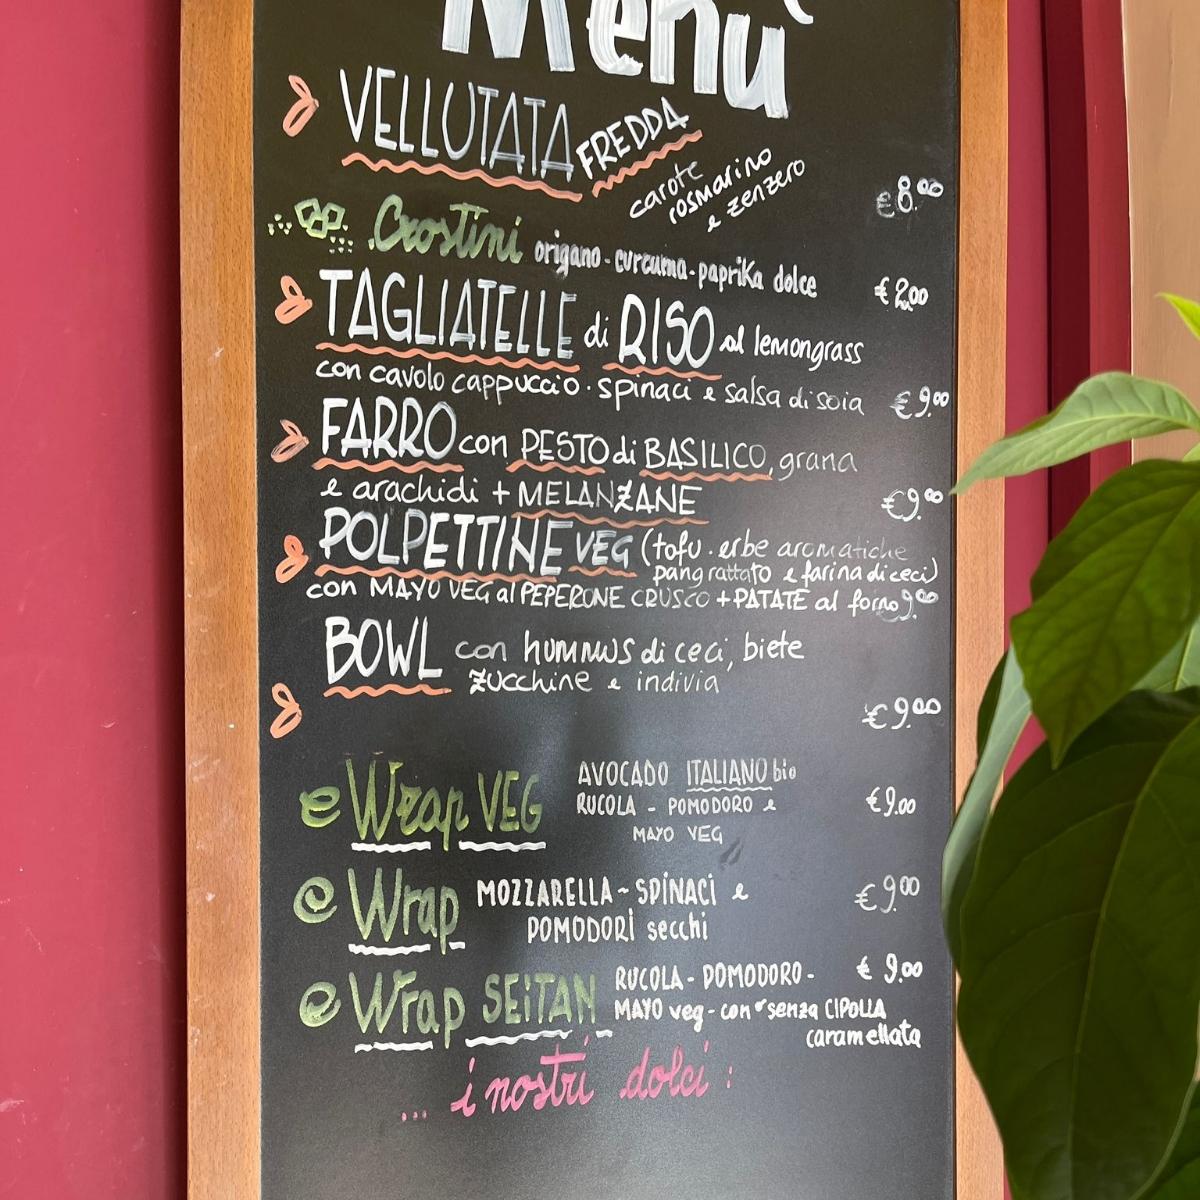 Menù
VELLUTATA FREDDA
carote
rosmarino
e zenzero
€8.00
Crostini origano-curcuma-paprika dolce €2,00
TAGLIATELLE di RISO al lemongrass
con cavolo cappuccio·spinaci e salsa di soia €9.00
FARRO con PESTO di BASILICO, grana
e arachidi + MELANZANE €9.00
POLPETTINE VEG (tofu·erbe aromatiche
pangrattato e farina di ceci)
con MAYO VEG al PEPERONE CRUSCO + PATATE al forno 9.00
BOWL con hummus di ceci, biete
zucchine e indivia
€9.00
Wrap VEG AVOCADO ITALIANO bio
RUCOLA - POMODORO e €9.00
MAYO VEG
Wrap MOZZARELLA - SPINACI e €9.00
POMODORI secchi
Wrap SEITAN RUCOLA - POMODORO - € 9.00
MAYO veg - con o senza CIPOLLA
caramellata
... i nostri dolci :